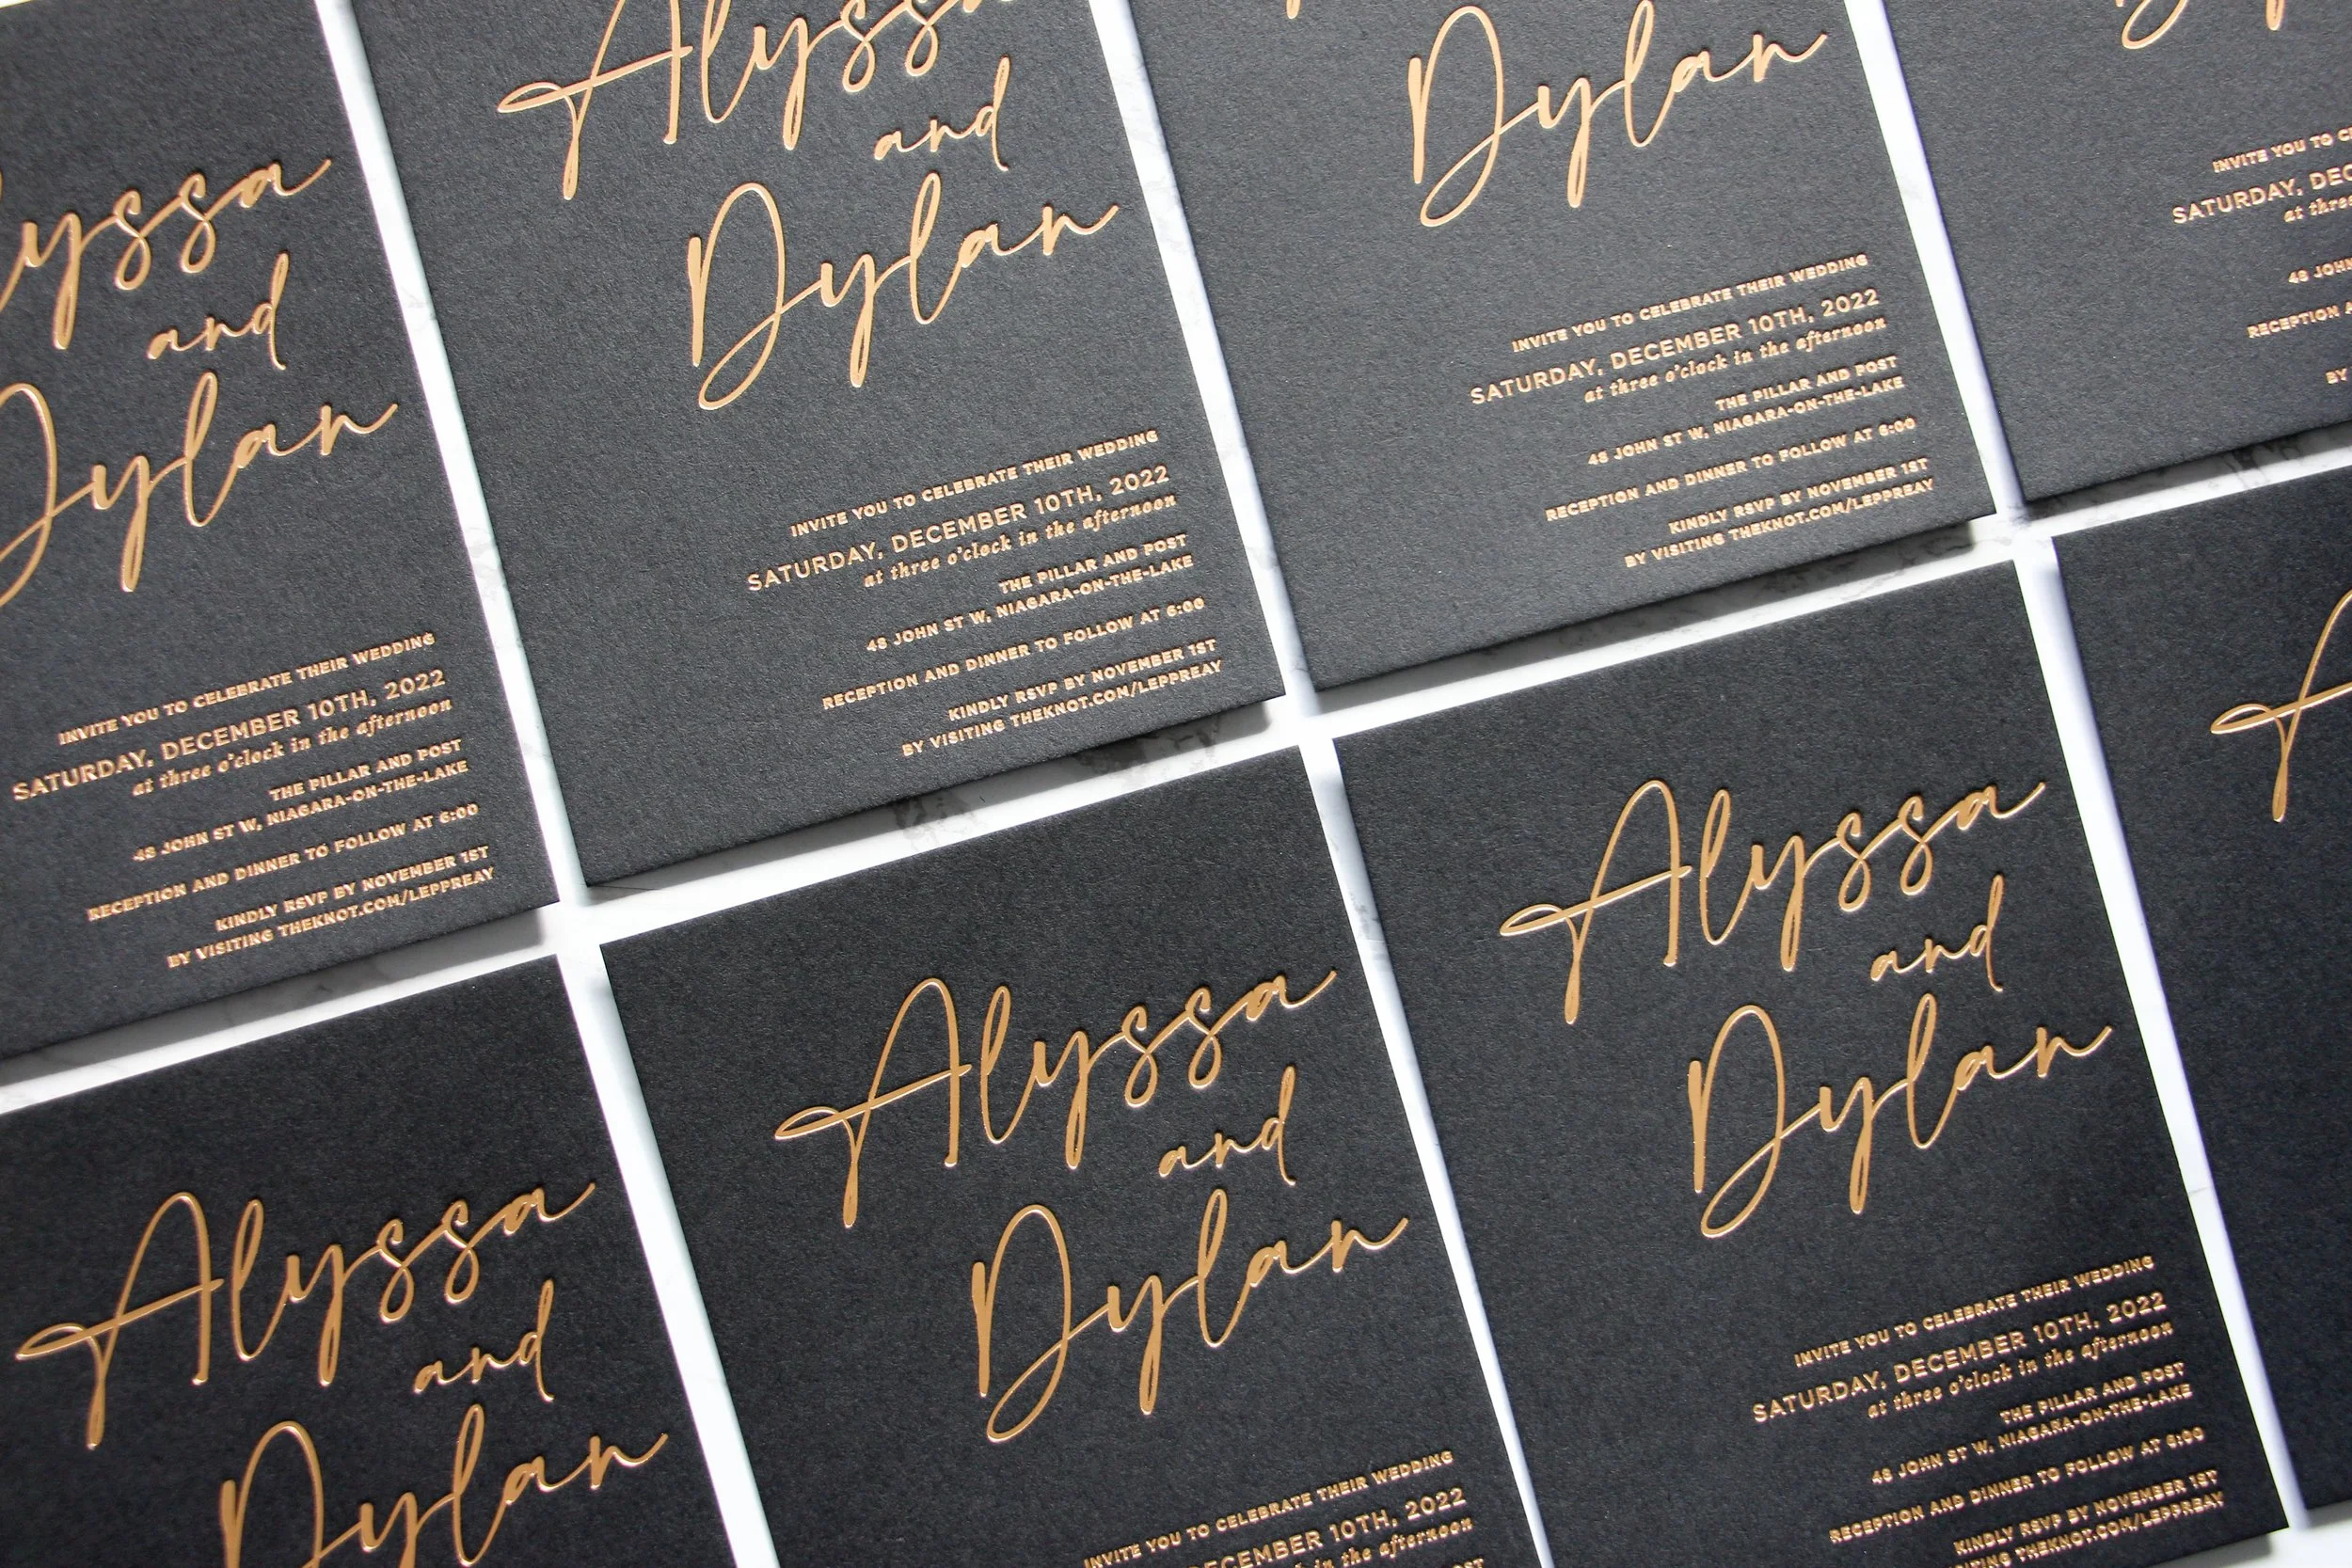 Alyssa
and
Dylan
INVITE YOU TO CELEBRATE THEIR WEDDING
SATURDAY, DECEMBER 10TH, 2022
at three o'clock in the afternoon
THE PILLAR AND POST
48 JOHN ST W, NIAGARA-ON-THE-LAKE
RECEPTION AND DINNER TO FOLLOW AT 6:00
KINDLY RSVP BY NOVEMBER 1ST
BY VISITING THEKNOT.COM/LEPPREAY
Alyssa
and
Dylan
INVITE YOU TO CELEBRATE THEIR WEDDING
SATURDAY, DECEMBER 10TH, 2022
at three o'clock in the afternoon
THE PILLAR AND POST
48 JOHN ST W, NIAGARA-ON-THE-LAKE
RECEPTION AND DINNER TO FOLLOW AT 6:00
KINDLY RSVP BY NOVEMBER 1ST
BY VISITING THEKNOT.COM/LEPPREAY
Dylan
INVITE YOU TO CELEBRATE THEIR WEDDING
SATURDAY, DECEMBER 10TH, 2022
at three o'clock in the afternoon
THE PILLAR AND POST
48 JOHN ST W, NIAGARA-ON-THE-LAKE
RECEPTION AND DINNER TO FOLLOW AT 6:00
KINDLY RSVP BY NOVEMBER 1ST
BY VISITING THEKNOT.COM/LEPPREAY
INVITE YOU TO
SATURDAY,
at three
48 JOHN
RECEPTION
BY
Alyssa
and
Dylan
Alyssa
and
Dylan
INVITE YOU TO CELEBRATE THEIR WEDDING
DECEMBER 10TH, 2022
in the afternoon
POST
Alyssa
and
Dylan
INVITE YOU TO CELEBRATE THEIR WEDDING
SATURDAY, DECEMBER 10TH, 2022
at three o'clock in the afternoon
THE PILLAR AND POST
48 JOHN ST W, NIAGARA-ON-THE-LAKE
RECEPTION AND DINNER TO FOLLOW AT 6:00
KINDLY RSVP BY NOVEMBER 1ST
VISITING THEKNOT.COM/LEPPREAY